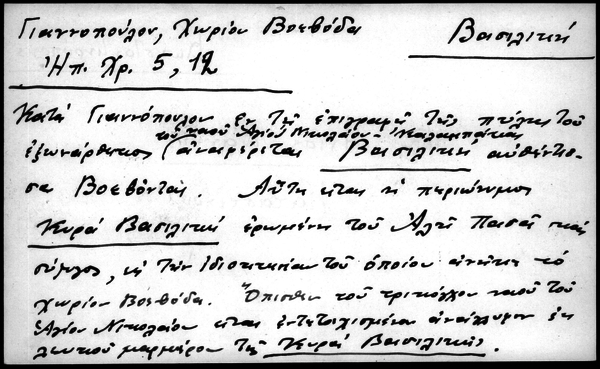 Γιαννοπούλου, Χωρίον Βοεβόδα Βασιλική
Ἠπ. Χρ. 5, 12
Κατά Γιαννόπουλον ἐν τῇ ἐπιγραφῇ τῆς πύλης τοῦ
τοῦ ναοῦ Ἁγίου Νικολάου - Καλαμπάκας
ἐξωνάρθηκος (ἀναφέρεται Βασιλική αὐθέντισ-
σα Βοεβόντας. Αὕτη εἶναι ἡ περιώνυμος
Κυρά Βασιλική ἐρωμένη τοῦ Ἀλῆ Πασᾶ καί
σύζυγος, εἰς τήν ἰδιοκτησίαν τοῦ ὁποίου ἀνῆκε τό
χωρίον Βοεβόδα. Ὄπισθεν τοῦ τρικόγχου ναοῦ τοῦ
Ἁγίου Νικολάου εἶναι ἐντετοιχισμένον ἀνάγλυφον ἐκ
λευκοῦ μαρμάρου τῆς Κυρᾶ Βασιλικῆς.